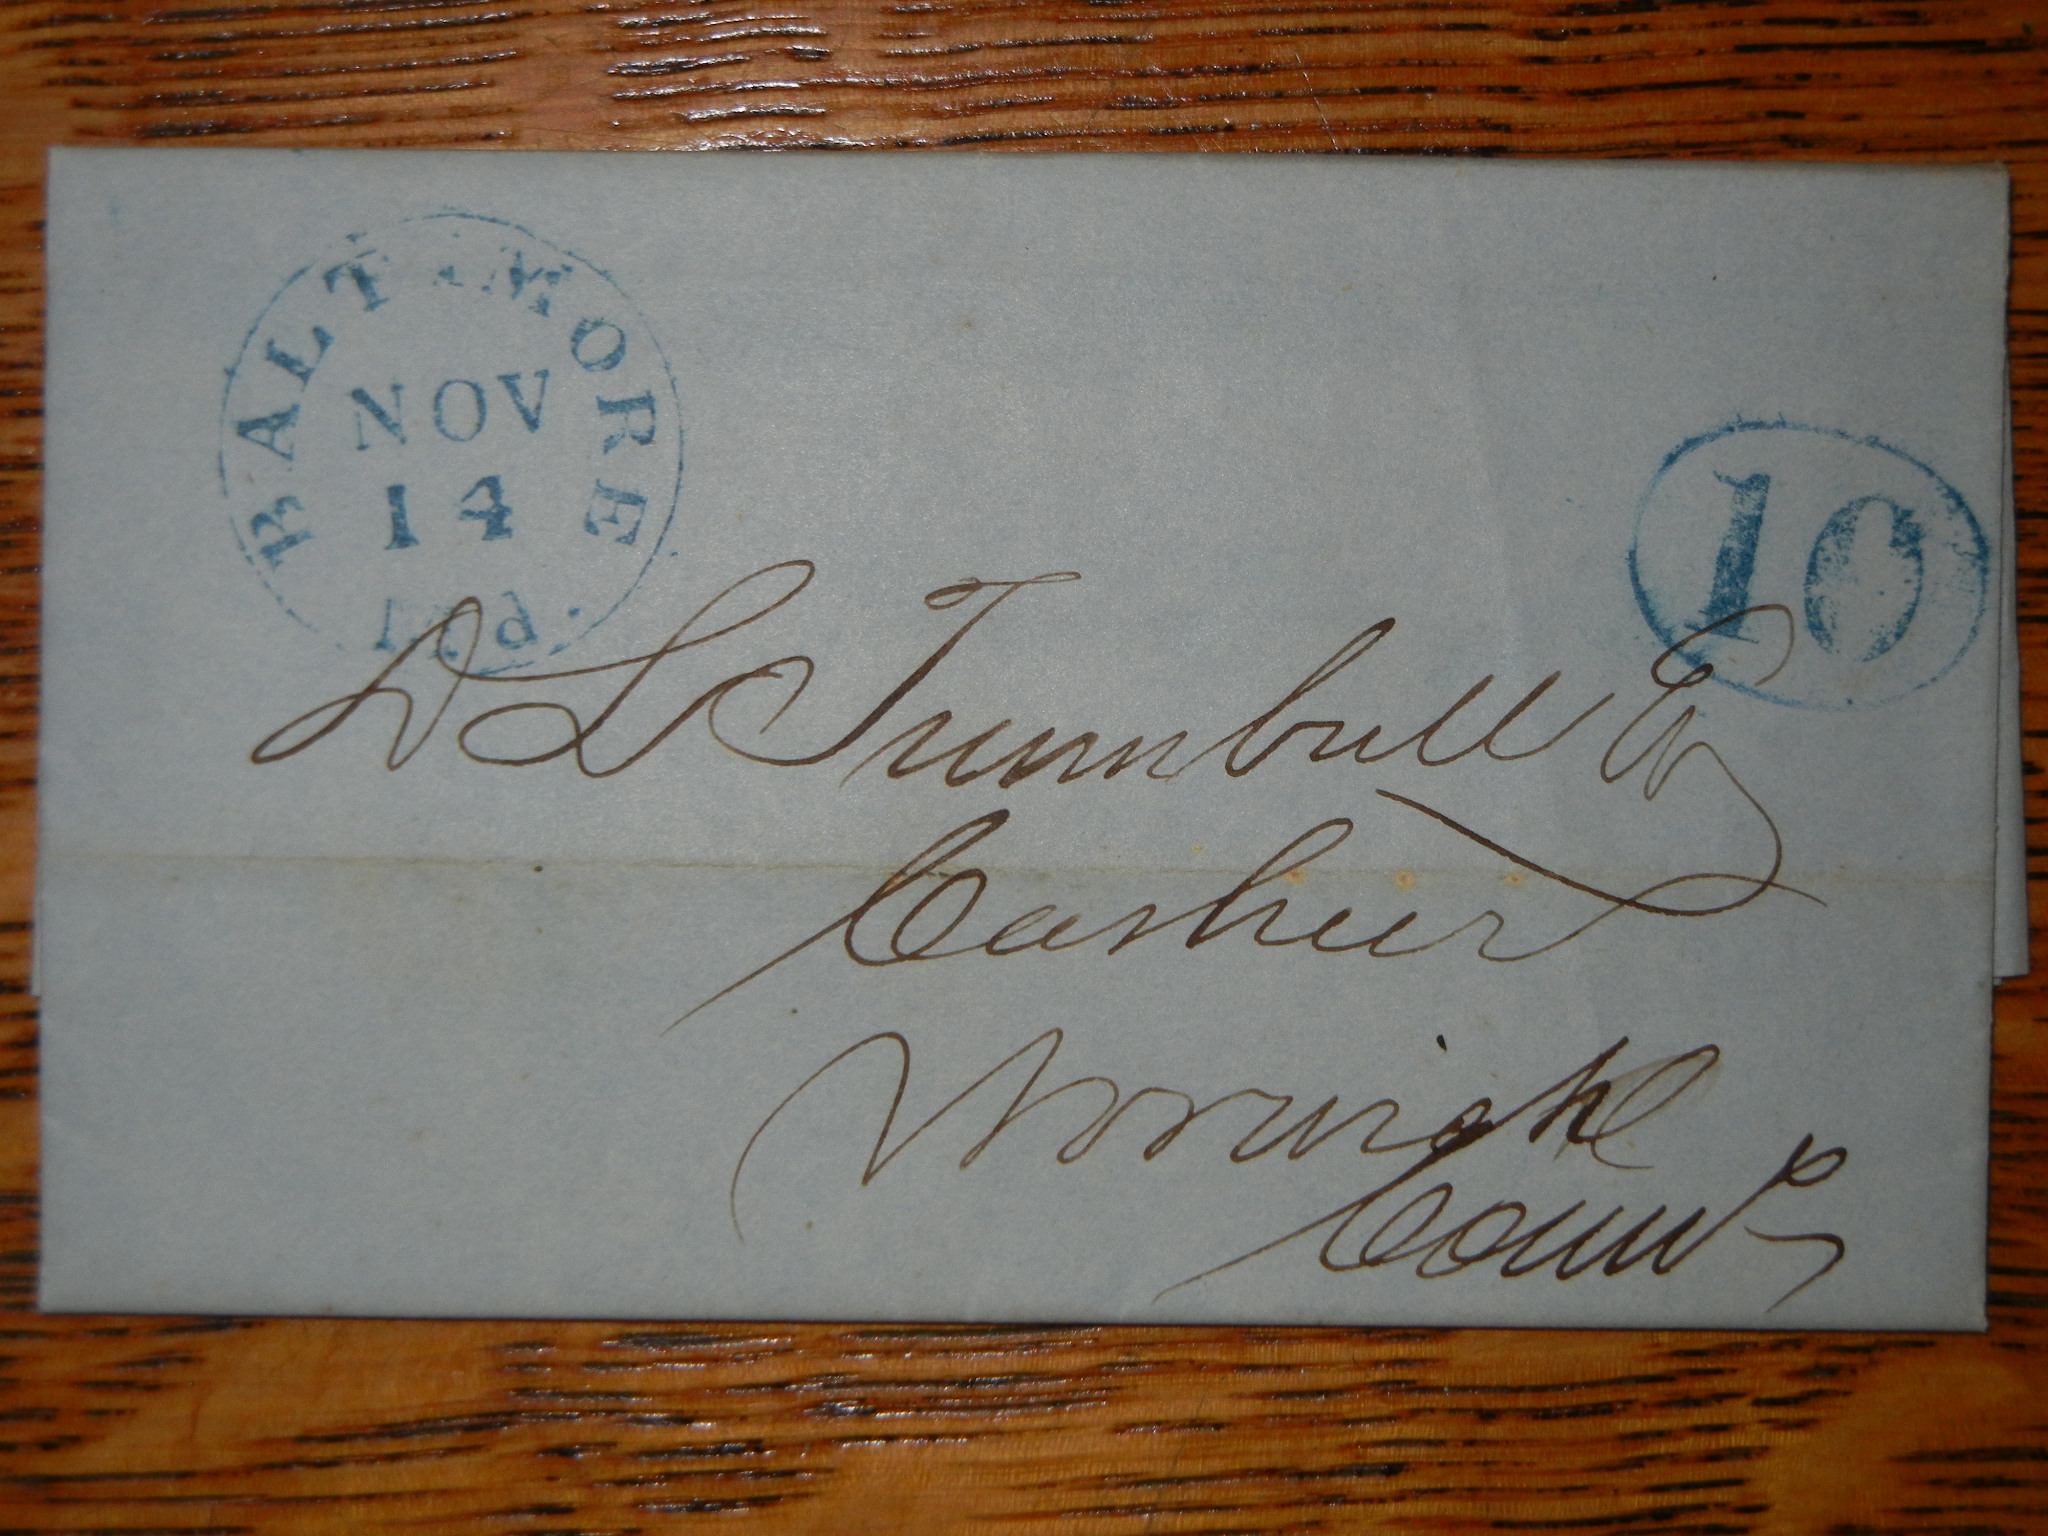 BALTIMORE
NOV
14
Md.
10
D L Trumbull Esq
Cashier
Norwich
Conn